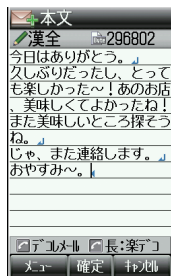 本文
漢全 296802
今日はありがとう。
久しぶりだったし、とって
も楽しかった～！あのお店
、美味しくてよかったね！
また美味しいところ探そう
ね。
じゃ、また連絡します。
おやすみ～。
デコルメール 長:楽デコ
メニュー 確定 キャンセル